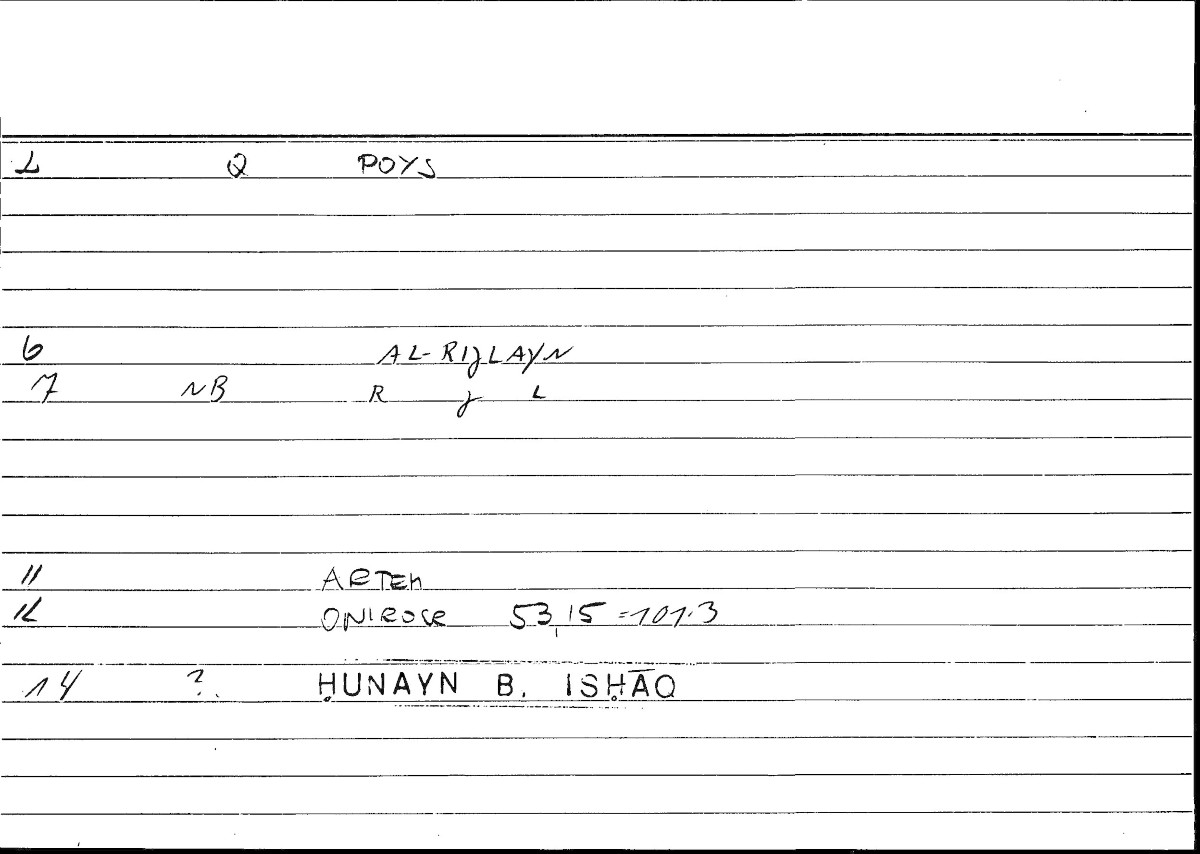 1 Q POYS
6 AL-RIJLAYN
7 NB R J L
11 ARTEM
12 ONIROCR 53,15 =101.3
14 ? ḤUNAYN B. ISḤĀQ